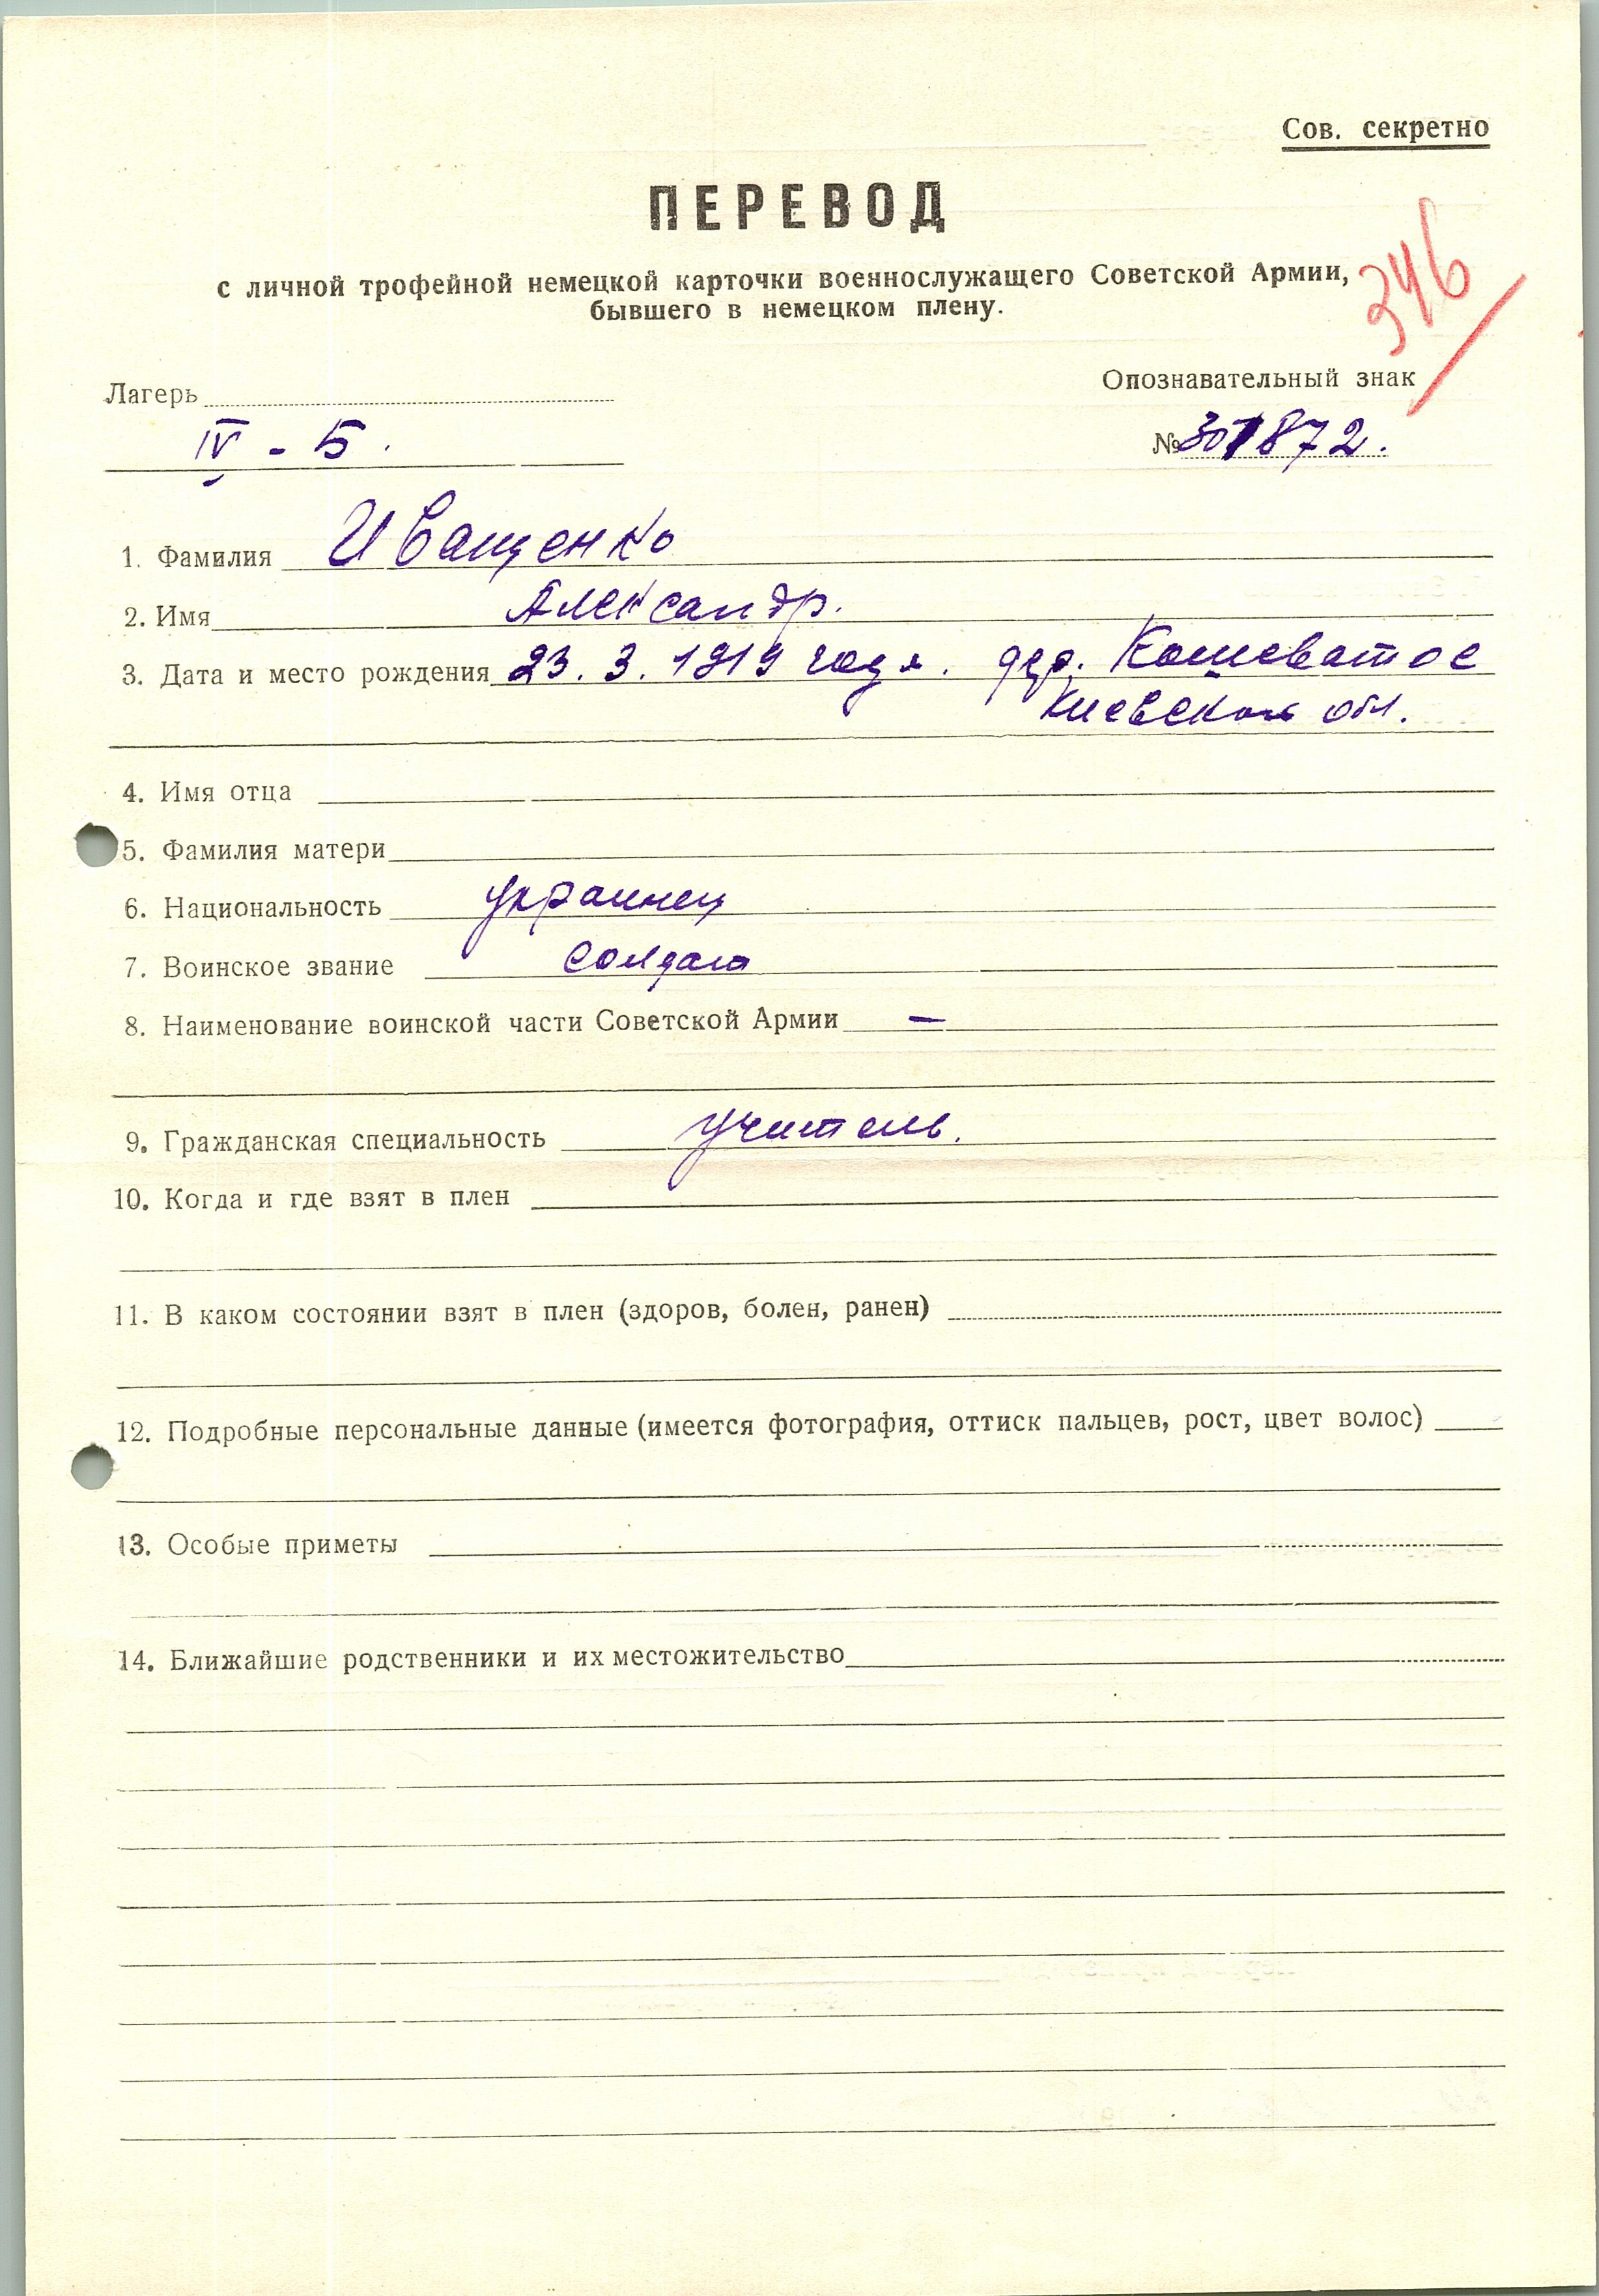 Сов. секретно
ПЕРЕВОД
с личной трофейной немецкой карточки военнослужащего Советской Армии,
бывшего в немецком плену.
346
Лагерь
Опознавательный знак
IV - Б.
№ 301872.
1. Фамилия Иващенко
2. Имя Александр.
3. Дата и место рождения 23. 3. 1919 года. дер. Кошеватое
Киевской обл.
4. Имя отца
5. Фамилия матери
6. Национальность украинец
7. Воинское звание солдат
8. Наименование воинской части Советской Армии —
9. Гражданская специальность учитель.
10. Когда и где взят в плен
11. В каком состоянии взят в плен (здоров, болен, ранен)
12. Подробные персональные данные (имеется фотография, оттиск пальцев, рост, цвет волос)
13. Особые приметы
14. Ближайшие родственники и их местожительство